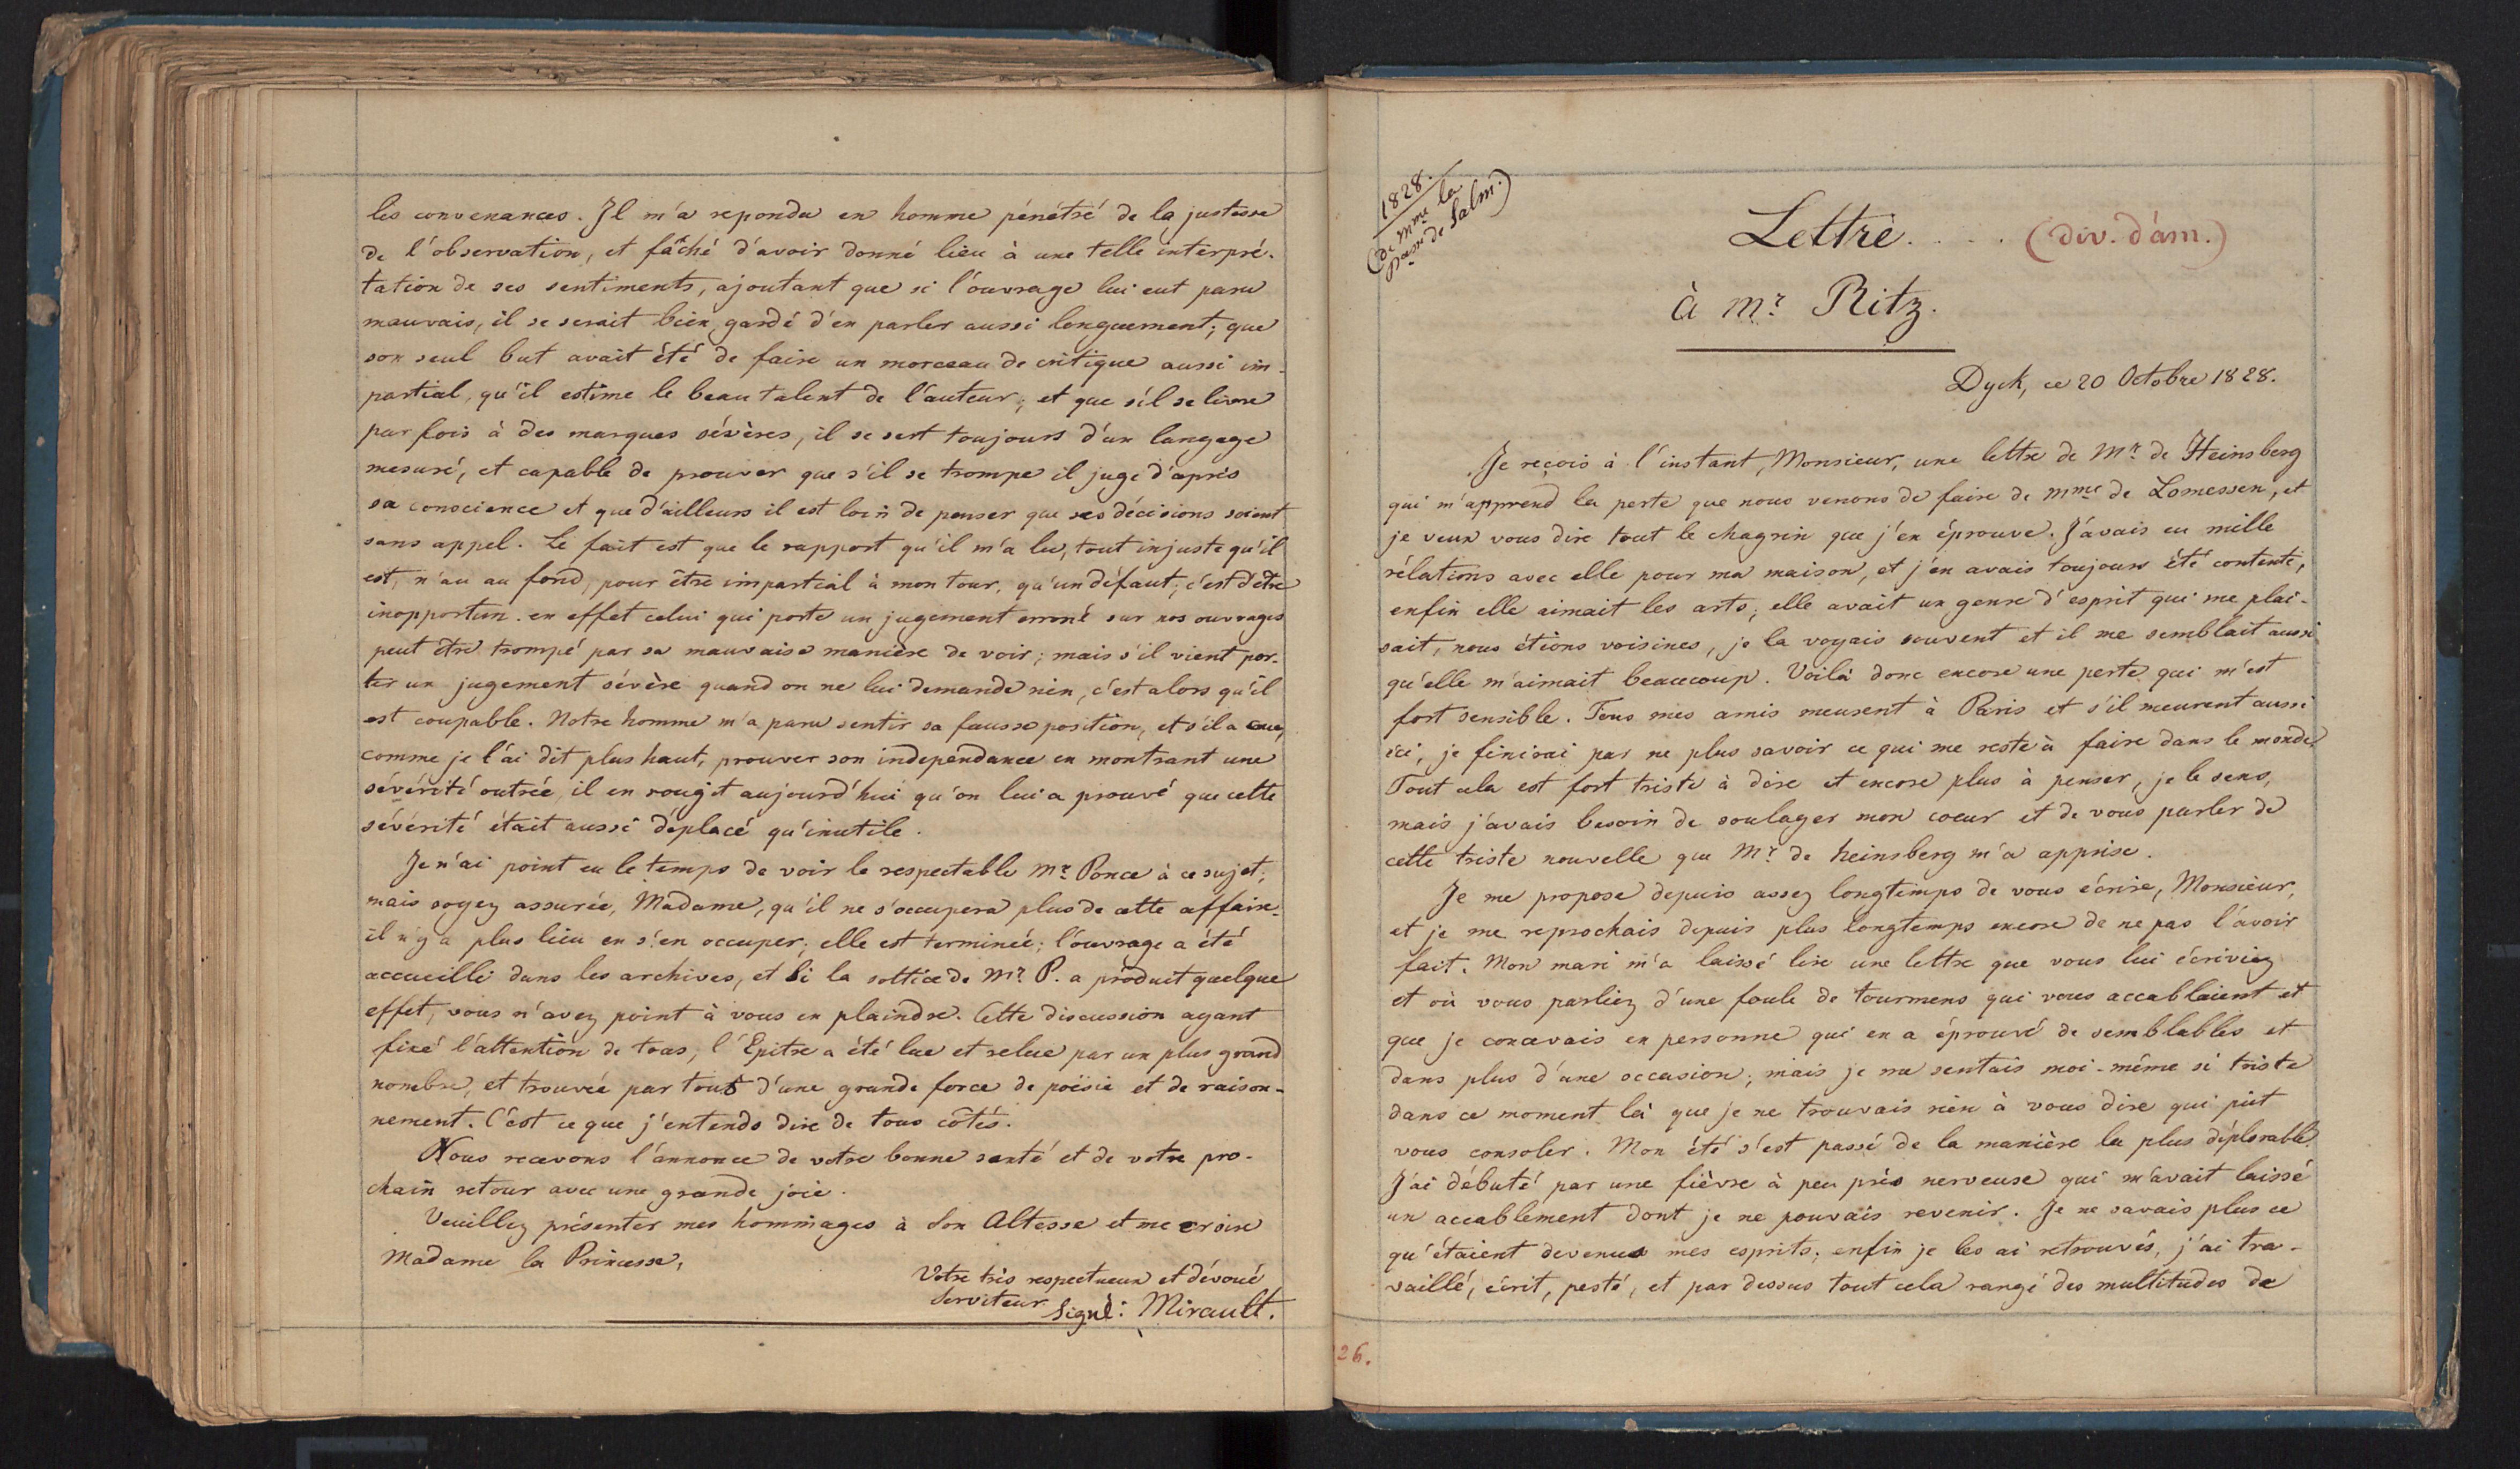 les convenances. Il m'a repondu en homme pénétré de la justesse
de l'observation, et fâché d'avoir donné lieu à une telle interpré-
tation de ses sentiments, ajoutant que si l'ouvrage lui eut paru
mauvais, il se serait bien gardé d'en parler aussi longuement; que
son seul but avait été de faire un morceau de critique aussi im-
partial, qu'il estime le beau talent de l'auteur; et que s'il se livre
par fois à des marques sévères, il se sert toujours d'un langage
mesuré, et capable de prouver que s'il se trompe il juge d'après
sa conscience et que d'ailleurs il est loin de penser que ses décisions soient
sans appel. Le fait est que le rapport qu'il m'a lu, tout injuste qu'il
est, n'au au fond, pour être impartial à mon tour, qu'un défaut, c'est d'être
inopportun. en effet celui qui porte un jugement erroné sur nos ouvrages
peut être trompé par sa mauvaise manière de voir; mais s'il vient por-
ter un jugement sévère quand on ne lui demande rien, c'est alors qu'il
est coupable. Notre homme m'a paru sentir sa fausse position, et s'il a cru,
comme je l'ai dit plus haut, prouver son independance en montrant une
sévérité outrée, il en rougit aujourd'hui qu'on lui a prouvé que cette
sévérité était aussi déplacé qu'inutile.
Je n'ai point eu le temps de voir le respectable Mr. Ponce à ce sujet;
mais soyez assurée, Madame, qu'il ne s'occupera plus de cette affaire.
il n'y a plus lieu en s'en occuper; elle est terminée; l'ouvrage a été
accueilli dans les archives, et si la sottice de Mr. P. a produit quelque
effet, vous n'avez point à vous en plaindre. Cette discussion ayant
fixé l'attention de tous, l'Epitre a été lue et relue par un plus grand
nombre, et trouvée par tous d'une grande force de poësie et de raison-
nement. C'est ce que j'entends dire de tous côtés.
Nous recevons l'annonce de votre bonne santé et de votre pro-
chain retour avec une grande joie.
Veuillez présenter mes hommages à Son Altesse et me croire
Madame la Princesse,
Votre très respectueux et dévoué
Serviteur
Signé: Mirault.
1828.
(de Mme la
Pse de Salm.)
Lettre. . . . (div. d'am.)
à Mr. Ritz.
Dyck, ce 20 Octobre 1828.
Je reçois à l'instant, Monsieur, une lettre de Mr. de Heinsberg
qui m'apprend la perte que nous venons de faire de Mme de Lomessen, et
je veux vous dire tout le chagrin que j'en éprouve. J'avais eu mille
rélations avec elle pour ma maison, et j'en avais toujours été contente,
enfin elle aimait les arts; elle avait un genre d'esprit qui me plai-
sait, nous étions voisines, je la voyais souvent et il me semblait aussi
qu'elle m'aimait beaucoup. Voilà donc encore une perte qui m'est
fort sensible. Tous mes amis meurent à Paris et s'il meurent aussi
ici, je finirai par ne plus savoir ce qui me reste à faire dans le monde.
Tout cela est fort triste à dire et encore plus à penser, je le sens,
mais j'avais besoin de soulager mon coeur et de vous parler de
cette triste nouvelle que Mr. de heinsberg m'a apprise.
Je me propose depuis assez longtimps de vous écrire, Monsieur,
et je me reprochais depuis plus longtemps encore de ne pas l'avoir
fait. Mon mari m'a laissé lire une lettre que vous lui écriviez
et où vous parliez d'une foule de tourmens qui vous accablaient et
que je concevais en personne qui en a éprouvé de semblables et
dans plus d'une occasion; mais je me sentais moi-même si triste
dans ce moment là que je ne trouvais rien à vous dire qui pût
vous consoler. Mon été s'est passé de la manière la plus déplorable.
J'ai débuté par une fièvre à peu près nerveuse qui m'avait laissé
un accablement dont je ne pouvais revenir. Je ne savais plus ce
qu'étaient devenus mes esprits; enfin je les ai retrouvés, j'ai tra-
vaillé, écrit, pesté, et par dessus tout cela rangé des multitudes de
26.